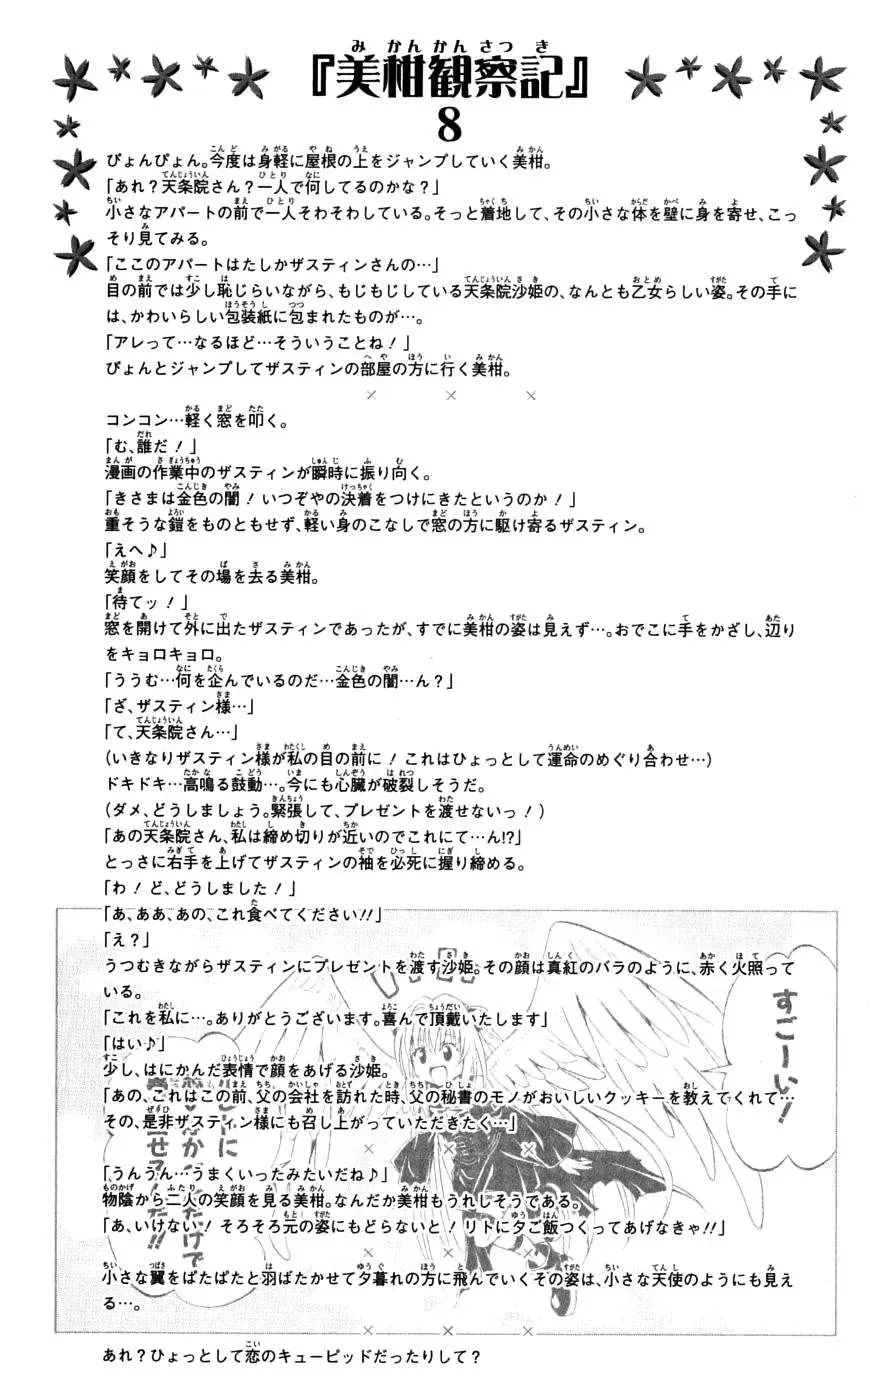 『美柑観察記』
8
ぴょんぴょん。今度は身軽に屋根の上をジャンプしていく美柑。
「あれ？天条院さん？一人で何してるのかな？」
小さなアパートの前で一人そわそわしている。そっと着地して、その小さな体を壁に身を寄せ、こっ
そり見てみる。
「ここのアパートはたしかザスティンさんの…」
目の前では少し恥じらいながら、もじもじしている天条院沙姫の、なんとも乙女らしい姿。その手に
は、かわいらしい包装紙に包まれたものが…。
「アレって…なるほど…そういうことね！」
ぴょんとジャンプしてザスティンの部屋の方に行く美柑。
× × ×
コンコン…軽く窓を叩く。
「む、誰だ！」
漫画の作業中のザスティンが瞬時に振り向く。
「きさまは金色の闇！いつぞやの決着をつけにきたというのか！」
重そうな鎧をものともせず、軽い身のこなしで窓の方に駆け寄るザスティン。
「えへ♪」
笑顔をしてその場を去る美柑。
「待てッ！」
窓を開けて外に出たザスティンであったが、すでに美柑の姿は見えず…。おでこに手をかざし、辺り
をキョロキョロ。
「ううむ…何を企んでいるのだ…金色の闇…ん？」
「ざ、ザスティン様…」
「て、天条院さん…」
(いきなりザスティン様が私の目の前に！これはひょっとして運命のめぐり合わせ…)
ドキドキ…高鳴る鼓動…。今にも心臓が破裂しそうだ。
(ダメ、どうしましょう。緊張して、プレゼントを渡せないっ！)
「あの天条院さん、私は締め切りが近いのでこれにて…ん!?」
とっさに右手を上げてザスティンの袖を必死に握り締める。
「わ！ど、どうしました！」
「あ、ああ、あの、これ食べてください!!」
「え？」
うつむきながらザスティンにプレゼントを渡す沙姫。その顔は真紅のバラのように、赤く火照って
いる。
「これを私に…。ありがとうございます。喜んで頂戴いたします」
「はい♪」
少し、はにかんだ表情で顔をあげる沙姫。
「あの、これはこの前、父の会社を訪れた時、父の秘書のモノがおいしいクッキーを教えてくれて…
その、是非ザスティン様にも召し上がっていただきたく…」
× × ×
「うんうん…うまくいったみたいだね♪」
物陰から二人の笑顔を見る美柑。なんだか美柑もうれしそうである。
「あ、いけない！そろそろ元の姿にもどらないと！リトに夕ご飯つくってあげなきゃ!!」
× × ×
小さな翼をぱたぱたと羽ばたかせて夕暮れの方に飛んでいくその姿は、小さな天使のようにも見え
る…。
× × ×
あれ？ひょっとして恋のキューピッドだったりして？
すごーい！